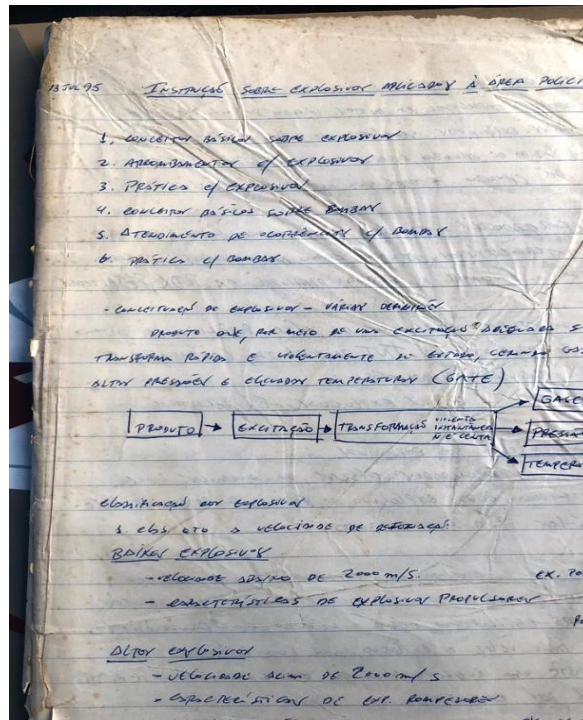 13 JUL 95 INSTRUÇÃO SOBRE EXPLOSIVOS APLICADOS À ÁREA POLICI
1. CONCEITOS BÁSICOS SOBRE EXPLOSIVOS
2. ARROMBAMENTOS C/ EXPLOSIVOS
3. PRÁTICA C/ EXPLOSIVOS
4. CONCEITOS BÁSICOS SOBRE BOMBAS
5. ATENDIMENTO DE OCORRÊNCIAS C/ BOMBAS
6. PRÁTICA C/ BOMBAS
- CONCEITUAÇÃO DE EXPLOSIVOS - VÁRIAS DEFINIÇÕES
PRODUTO QUE, POR MEIO DE UMA EXCITAÇÃO ADEQUADA S
TRANSFORMA RÁPIDA E VIOLENTAMENTE DE ESTADO, GERANDO GAS
ALTAS PRESSÕES E ELEVADAS TEMPERATURAS (GATE)
PRODUTO → EXCITAÇÃO → TRANSFORMAÇÃO VIOLENTA INSTANTÂNEA
GASES
PRESSÃO
TEMPERA
CLASSIFICAÇÃO DOS EXPLOSIVOS
QTO A VELOCIDADE DE DETONAÇÃO
BAIXOS EXPLOSIVOS
- VELOCIDADE ABAIXO DE 2000 m/s. EX. PO
- CARACTERÍSTICAS DE EXPLOSIVOS PROPULSORES
ALTOS EXPLOSIVOS
- VELOCIDADE ACIM. DE 2000 m/s
- CARACTERÍSTICAS DE EXP. ROMPEDORES